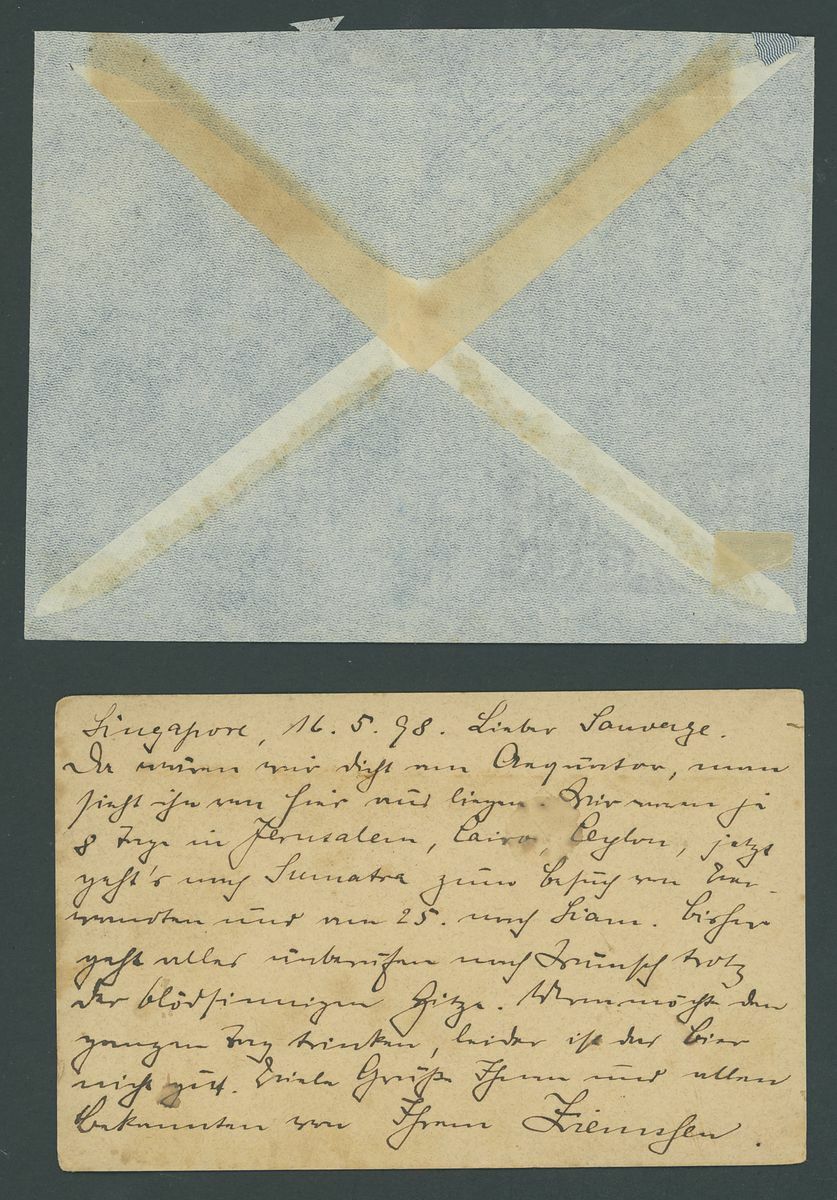 Singapore, 16. 5. 98. Lieber Sauverge.
Da wären wir dicht am Aequator, man
sieht ihn von hier aus liegen. Wir waren je
8 Tage in Jerusalem, Cairo, Ceylon, jetzt
geht's nach Sumatra zum Besuch von Ver-
wandten und am 25. nach Siam. Bisher
geht alles unberufen nach Wunsch trotz
der blödsinnigen Hitze. Man möchte den
ganzen Tag trinken, leider ist das Bier
nicht gut. Viele Grüße Ihnen und allen
Bekannten von Ihrem Ziemssen.